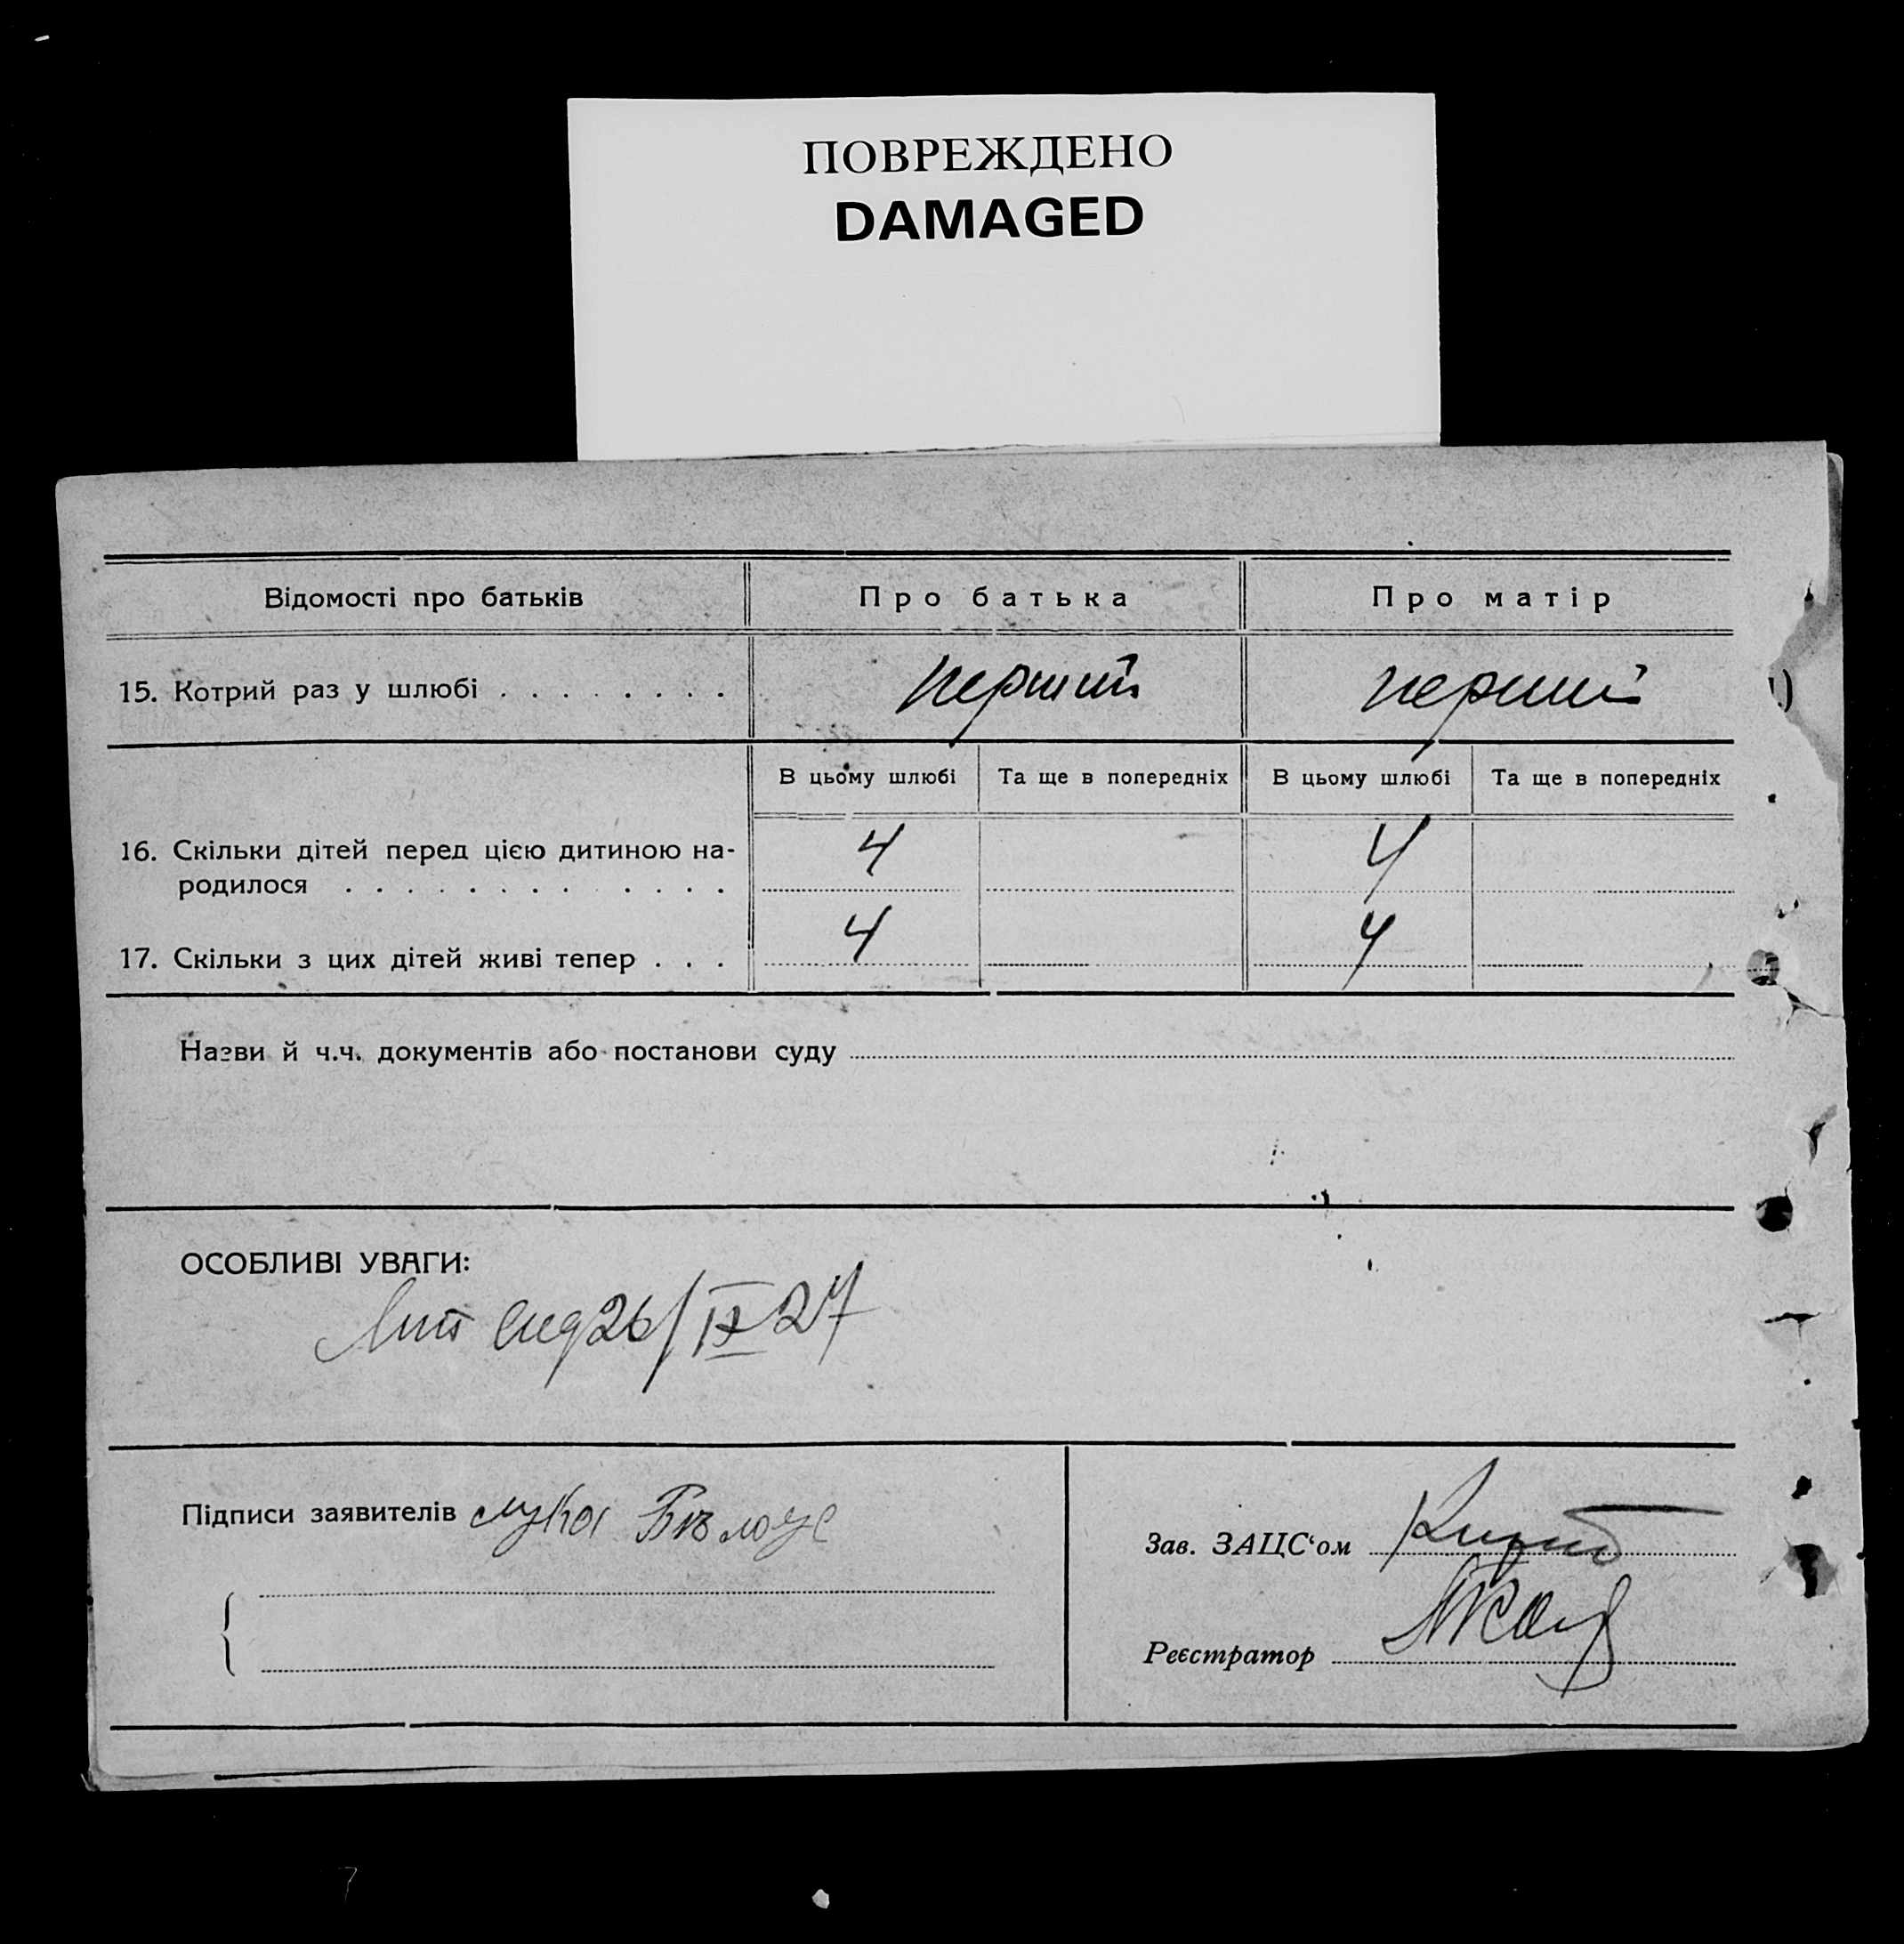 ПОВРЕЖДЕНО
DAMAGED
Відомості про батьків Про батька Про матір
15. Котрий раз у шлюбі . . . . . . . . перший перший
В цьому шлюбі Та ще в попередніх В цьому шлюбі Та ще в попередніх
16. Скільки дітей перед цією дитиною на-
родилося . . . . . . . . . . . . . 4 4
17. Скільки з цих дітей живі тепер . . . 4 4
Назви й ч.ч. документів або постанови суду
ОСОБЛИВІ УВАГИ:
26/IX 27
Підписи заявителів Лука Бѣлоус
Зав. ЗАЦС‘ом
Реєстратор